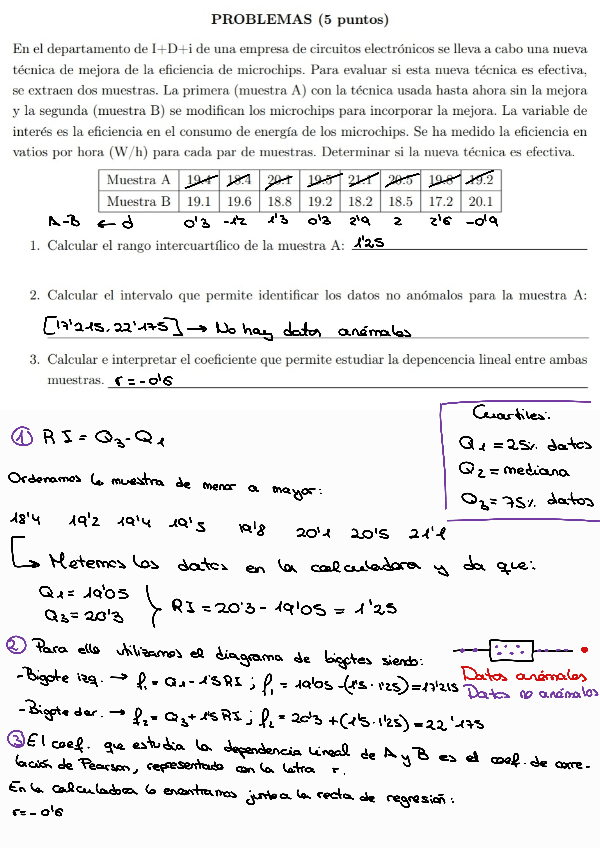 PROBLEMAS (5 puntos)
En el departamento de I+D+i de una empresa de circuitos electrónicos se lleva a cabo una nueva
técnica de mejora de la eficiencia de microchips. Para evaluar si esta nueva técnica es efectiva,
se extraen dos muestras. La primera (muestra A) con la técnica usada hasta ahora sin la mejora
y la segunda (muestra B) se modifican los microchips para incorporar la mejora. La variable de
interés es la eficiencia en el consumo de energía de los microchips. Se ha medido la eficiencia en
vatios por hora (W/h) para cada par de muestras. Determinar si la nueva técnica es efectiva.
Muestra A 19.4 18.4 20.1 19.5 21.1 20.5 19.8 19.2
Muestra B 19.1 19.6 18.8 19.2 18.2 18.5 17.2 20.1
A-B ← d 0'3 -1'2 1'3 0'3 2'9 2 2'6 -0'9
1. Calcular el rango intercuartílico de la muestra A: 1'25
2. Calcular el intervalo que permite identificar los datos no anómalos para la muestra A:
[17'215, 22'175] → No hay datos anómalos
3. Calcular e interpretar el coeficiente que permite estudiar la depencencia lineal entre ambas
muestras. r = -0'6
Cuartiles:
Q1 = 25% datos
Q2 = mediana
Q3 = 75% datos
① RI = Q3 - Q1
Ordenamos la muestra de menor a mayor:
18'4 19'2 19'4 19'5 19'8 20'1 20'5 21'1
↳ Metemos los datos en la calculadora y da que:
Q1 = 19'05
Q3 = 20'3
RI = 20'3 - 19'05 = 1'25
② Para ello utilizamos el diagrama de bigotes siendo:
-Bigote izq. → f1 = Q1 - 1'5 RI ; f1 = 19'05 - (1'5 · 1'25) = 17'215
Datos anómalos
Datos no anómalos
-Bigote der. → f2 = Q3 + 1'5 RI ; f2 = 20'3 + (1'5 · 1'25) = 22'175
③ El coef. que estudia la dependencia lineal de A y B es el coef. de corre-
lación de Pearson, representado con la letra r.
En la calculadora lo encontramos junto a la recta de regresión:
r = -0'6